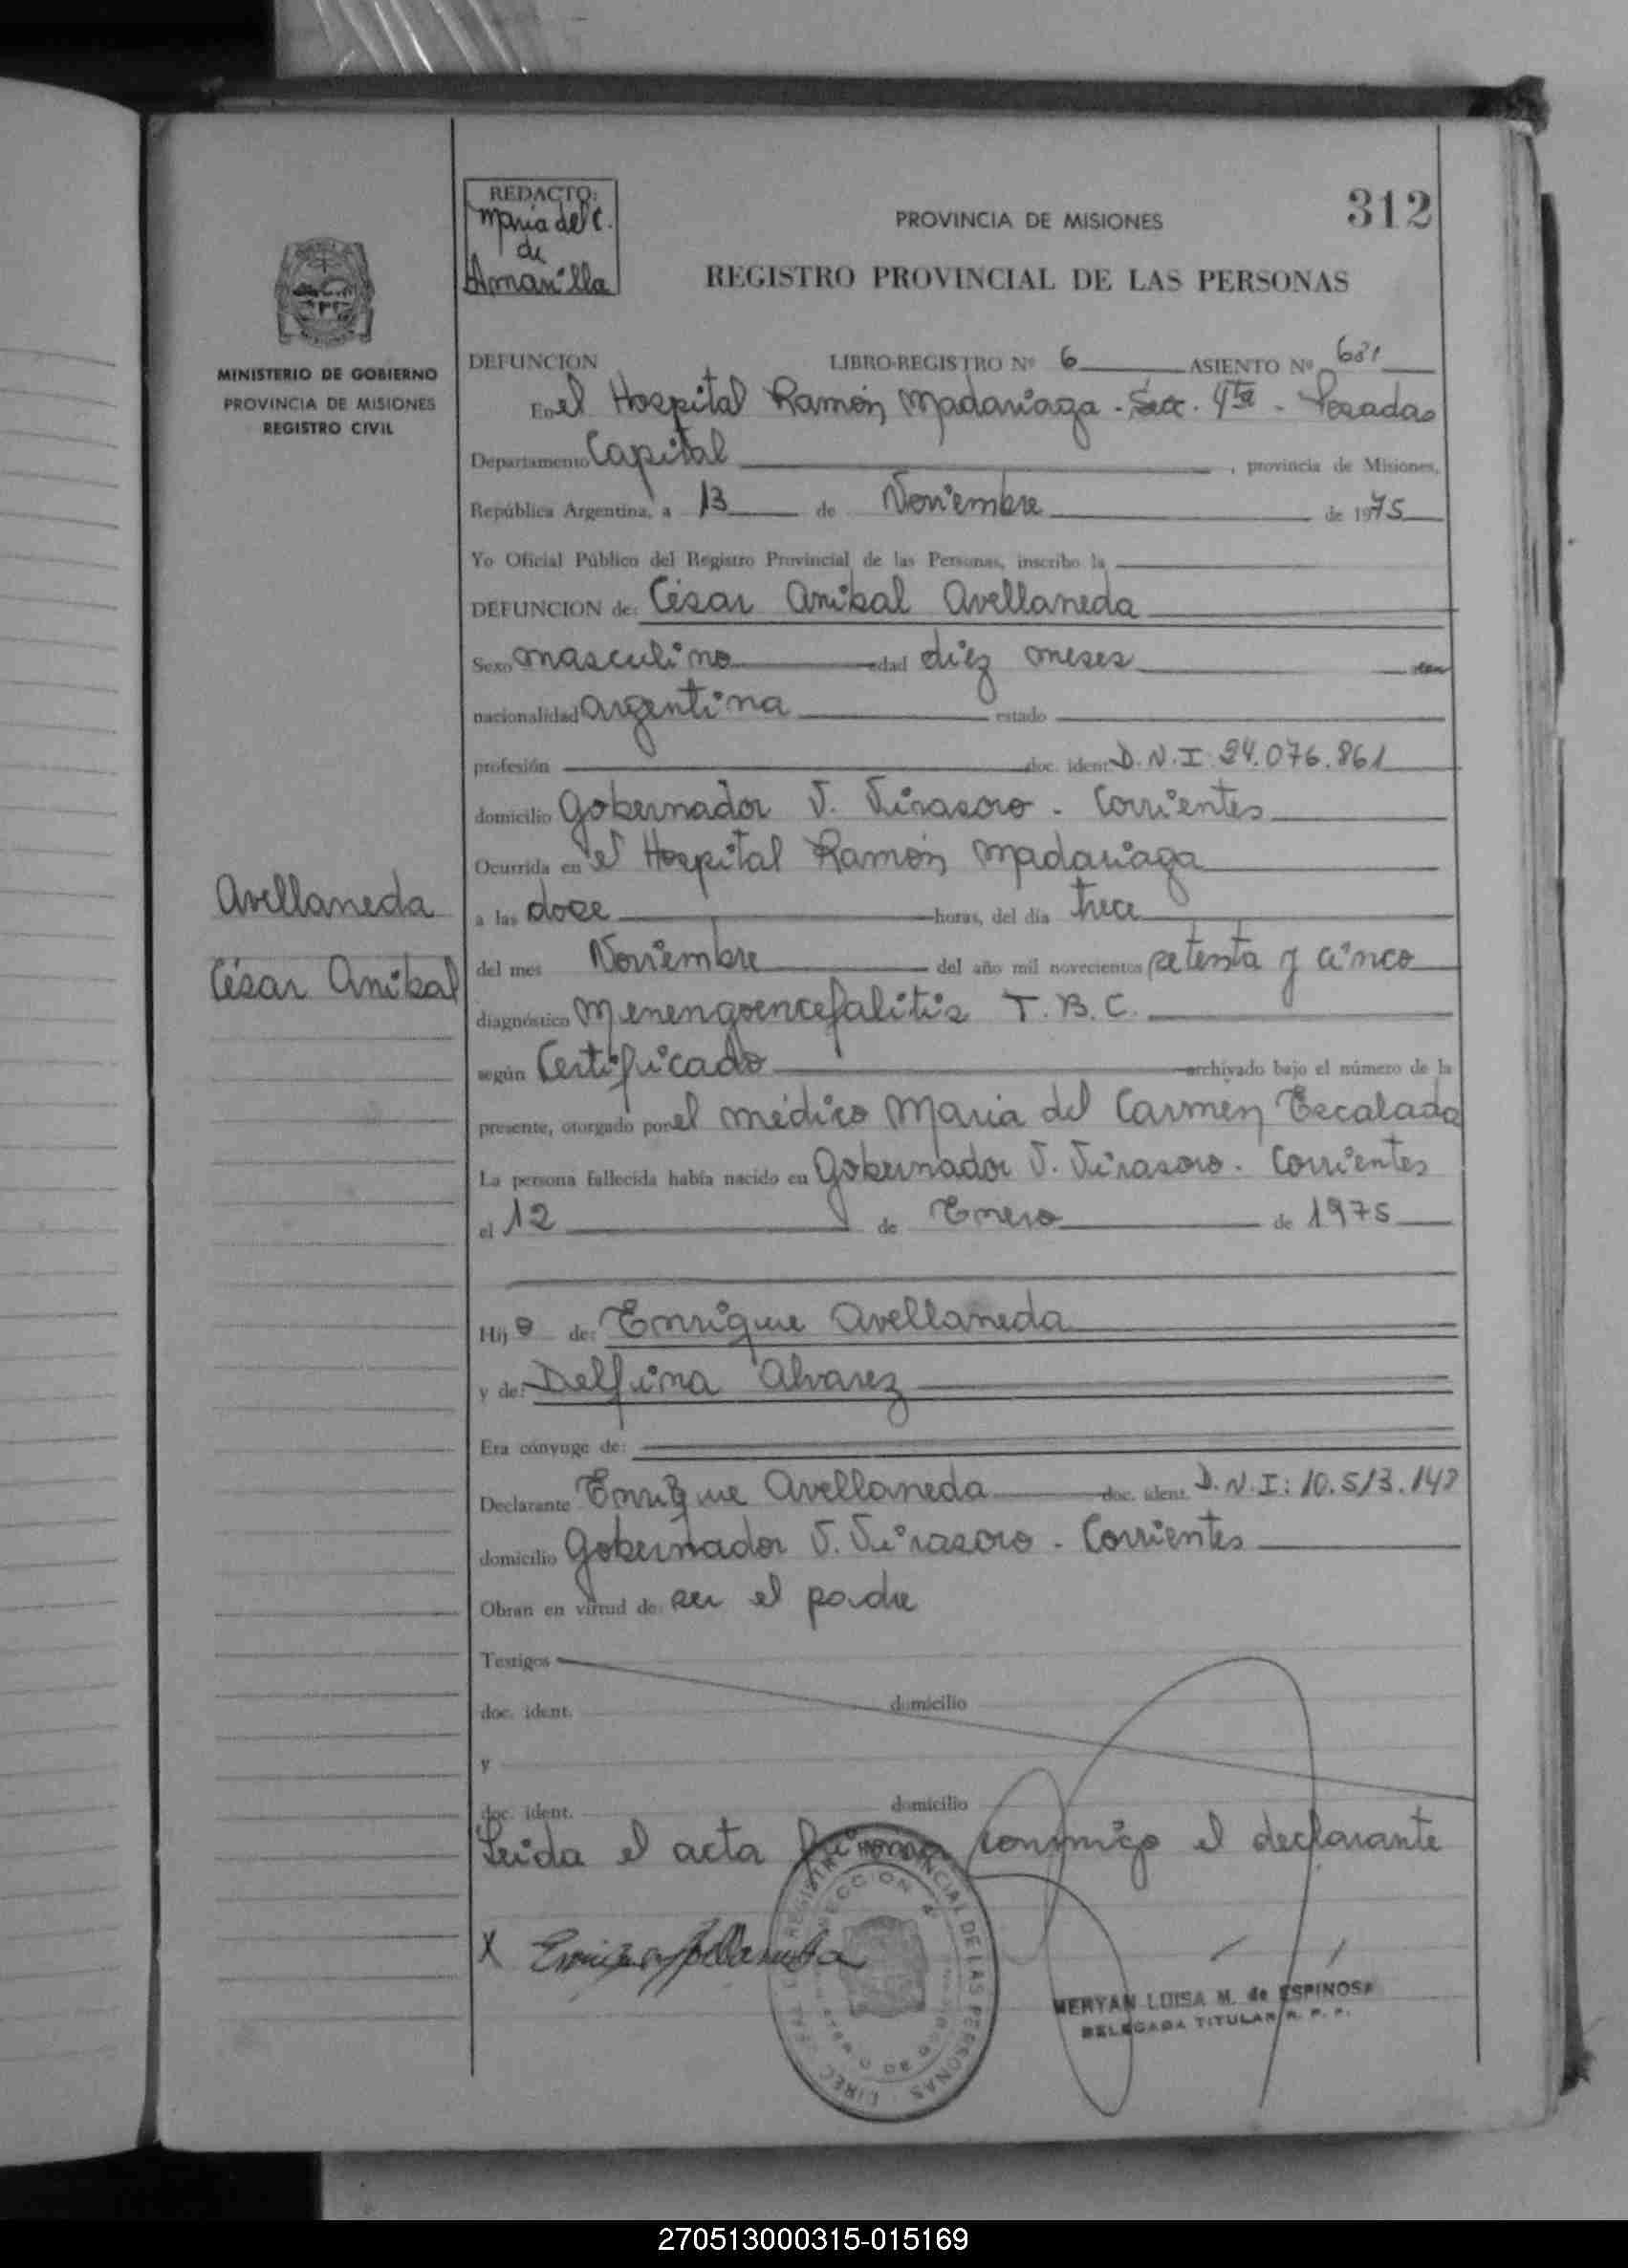 REDACTO:
Maria del C.
de
Amarilla
312
PROVINCIA DE MISIONES
REGISTRO PROVINCIAL DE LAS PERSONAS
MINISTERIO DE GOBIERNO
PROVINCIA DE MISIONES
REGISTRO CIVIL
DEFUNCION LIBRO-REGISTRO Nº 6 ASIENTO Nº
En el Hospital Ramón Madariaga - Sec. 4ta - Posadas
Departamento Capital, provincia de Misiones,
República Argentina, a 13 de Noviembre de 1975
Yo Oficial Público del Registro Provincial de las Personas, inscribo la
DEFUNCION de: César Anibal Avellaneda
Sexo masculino edad diez meses
nacionalidad argentina estado
profesión doc. ident. D.N.I. 24.076.861
domicilio Gobernador V. Virasoro - Corrientes
Ocurrida en el Hospital Ramón Madariaga
a las doce horas, del día trece
del mes Noviembre del año mil novecientos setenta y cinco
diagnóstico Menengoencefalitis T.B.C.
según Certificado archivado bajo el número de la
presente, otorgado por el médico Maria del Carmen Escalada
La persona fallecida había nacido en Gobernador V. Virasoro - Corrientes
el 12 de Enero de 1975
Avellaneda
César Anibal
Hijo de: Enrique Avellaneda
y de: Delfina Alvarez
Era cónyuge de:
Declarante Enrique Avellaneda doc. ident. D.N.I: 10.513.147
domicilio Gobernador V. Virasoro - Corrientes
Obran en virtud de ser el padre
Testigos
doc. ident. domicilio
y
doc. ident. domicilio
Leida el acta firma conmigo el declarante
X Enrique Avellaneda
MERYAN LUISA M. de ESPINOSA
DELEGADA TITULAR R. P. P.
270513000315-015169